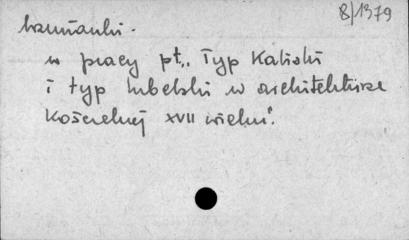 8/1379
w pracy pt.„ Typ Kaliski
i typ lubelski w architekturze
Kościelnej XVII wieku".